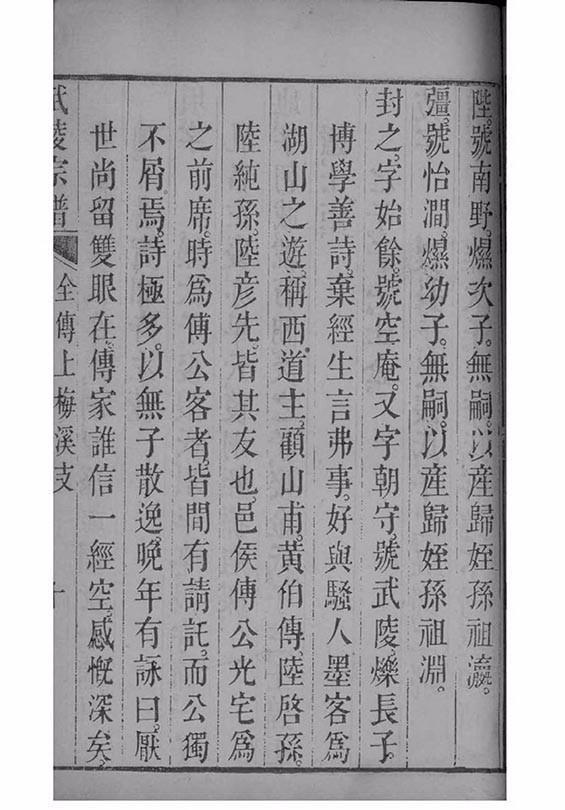 陛。號南野。爆次子。無嗣。以産歸姪孫祖瀛。
彊。號怡澗。爆幼子。無嗣。以産歸姪孫祖淵。
封之。字始餘。號空庵。又字朝守。號武陵。爍長子。
博學善詩。棄經生言弗事。好與騷人墨客為
湖山之遊。稱西道主。顧山甫。黃伯傳。陸啓孫。
陸純孫。陸彦先。皆其友也。邑侯傅公光宅爲
之前席。時爲傅公客者。皆間有請託。而公獨
不屑焉。詩極多。以無子散逸。晩年有詠曰。厭
世尚留雙眼在。傳家誰信一經空。感慨深矣。
武陵宗譜
全傳上梅溪支
十